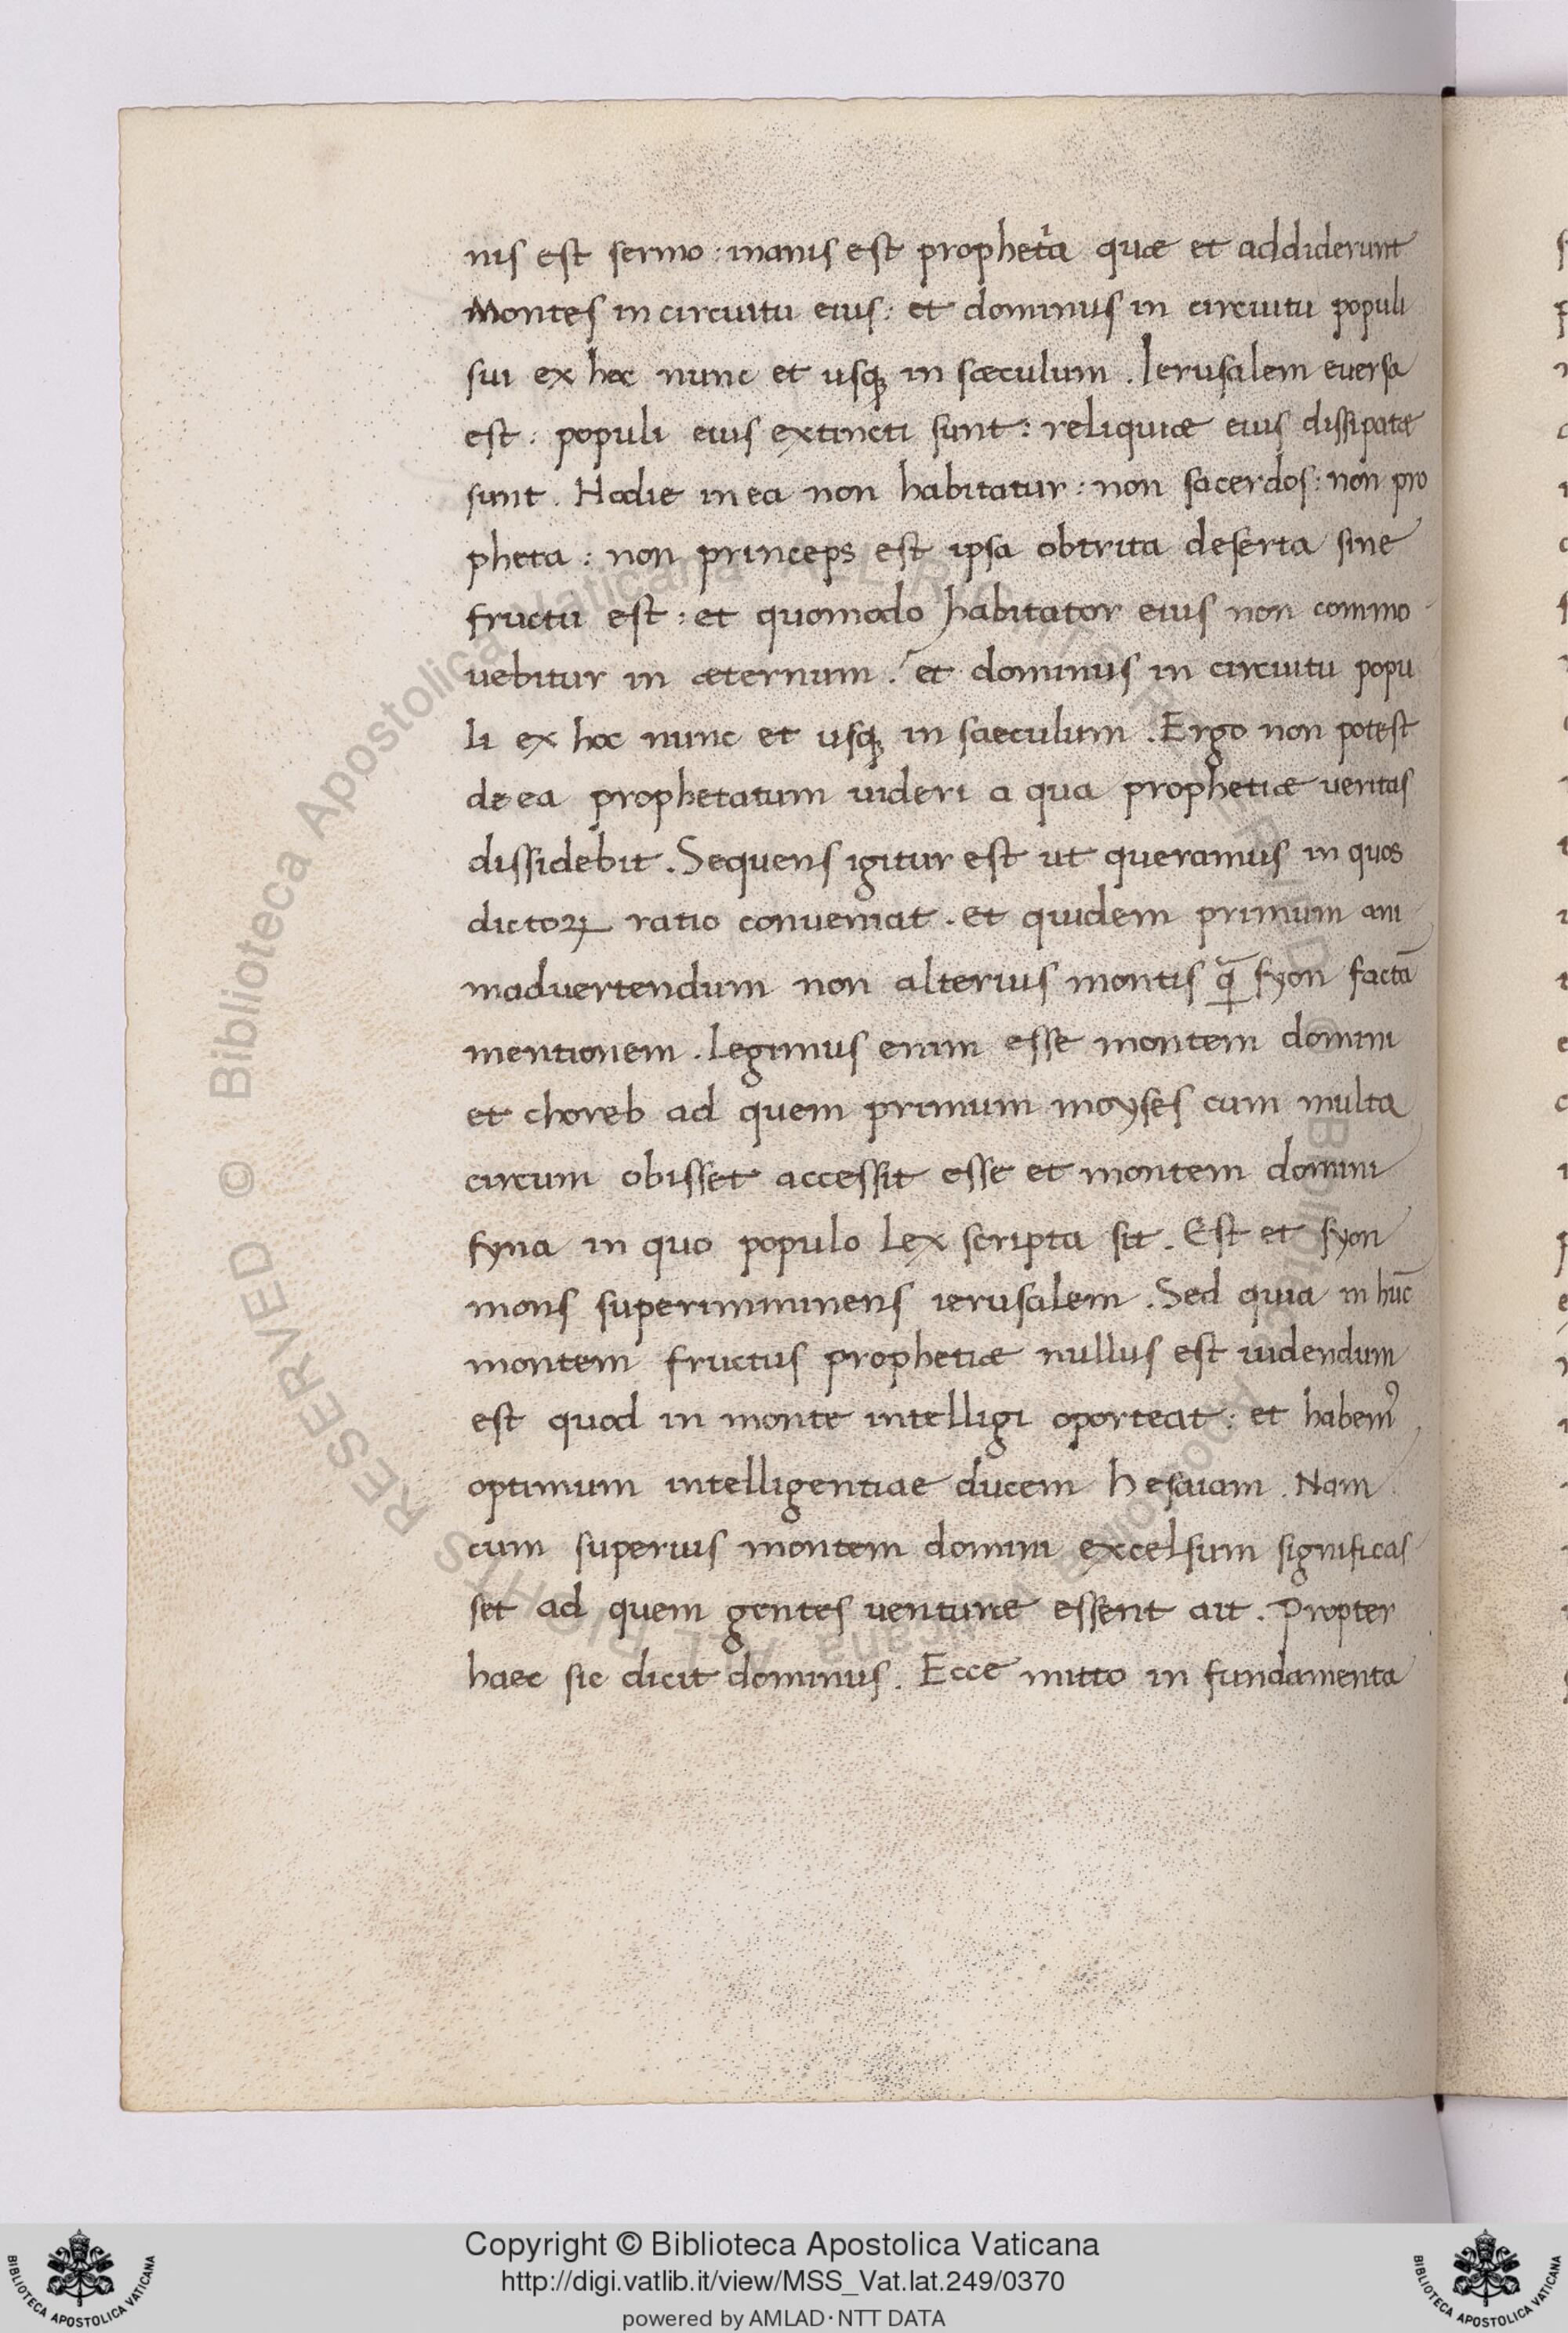 nis est sermo : inanis est prophetia quæ et addiderunt
Montes in circuitu eius : et dominus in circuitu populi
sui ex hoc nunc et usqꝫ in sæculum . Ierusalem euersa
est : populi eius extincti sunt : reliquiæ eius dissipatæ
sunt . Hodie in ea non habitatur : non sacerdos : non pro
pheta : non princeps est ipsa obtrita deserta sine
fructu est : et quomodo habitator eius non commo
uebitur in æternum . et dominus in circuitu popu
li ex hoc nunc et usqꝫ in saeculum . Ergo non potest
de ea prophetatum uideri a qua prophetiæ ueritas
dissidebit . Sequens igitur est ut queramus in quos
dictoꝝ ratio conueniat . et quidem primum ani
maduertendum non alterius montis qᷓ syon factā
mentionem . Legimus enim esse montem domini
et choreb ad quem primum moyses cum multa
circum obisset accessit esse et montem domini
syna in quo populo lex scripta sit . Est et syon
mons superimminens ierusalem . Sed quia in hūc
montem fructus prophetiæ nullus est uidendum
est quod in monte intelligi oporteat : et habemꝰ
optimum intelligentiae ducem hesaiam . Nam
cum superius montem domini excelsum significas
set ad quem gentes venturæ essent ait . Propter
haec sic dicit dominus . Ecce mitto in fundamenta
Copyright © Biblioteca Apostolica Vaticana
http://digi.vatlib.it/view/MSS_Vat.lat.249/0370
powered by AMLAD·NTT DATA